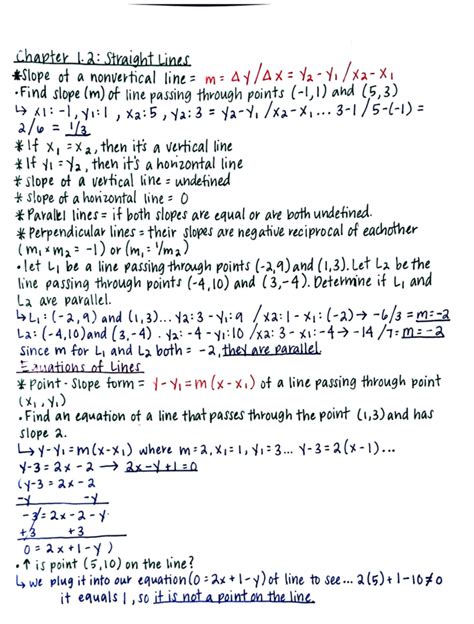 Chapter 1.2: Straight Lines
*Slope of a nonvertical line = m = Δy/Δx = y₂-y₁/x₂-x₁
•Find slope (m) of line passing through points (-1,1) and (5,3)
↳ x1:-1, y1:1, x2:5, y2:3 = y₂-y₁/x₂-x₁... 3-1/5-(-1) =
2/6 = 1/3
*If x₁=x₂, then it's a vertical line
*If y₁=y₂, then it's a horizontal line
*slope of a vertical line = undefined
*slope of a horizontal line = 0
*Parallel lines = if both slopes are equal or are both undefined.
*Perpendicular lines = their slopes are negative reciprocal of eachother
(m₁×m₂ = -1) or (m₁=1/m₂)
•let L₁ be a line passing through points (-2,9) and (1,3). Let L₂ be the
line passing through points (-4,10) and (3,-4). Determine if L₁ and
L₂ are parallel.
↳L₁: (-2,9) and (1,3)... y2:3-y1:9 /x2:1-x1:(-2) → -6/3 = m=-2
L₂: (-4,10) and (3,-4). y2:-4-y1:10 /x2:3-x1:-4 → -14/7= m=-2
since m for L₁ and L₂ both = -2, they are parallel.
Equations of Lines
*Point-Slope form = y-y₁=m(x-x₁) of a line passing through point
(x₁,y₁)
•Find an equation of a line that passes through the point (1,3) and has
slope 2.
↳y-y₁=m(x-x₁) where m=2, x₁=1, y₁=3... y-3=2(x-1)...
y-3=2x-2 → 2x-y+1=0
(y-3=2x-2
-y -y
-3=2x-2-y
+3 +3
0=2x+1-y)
•↑ is point (5,10) on the line?
↳ we plug it into our equation (0=2x+1-y) of line to see... 2(5)+1-10≠0
it equals 1, so it is not a point on the line.